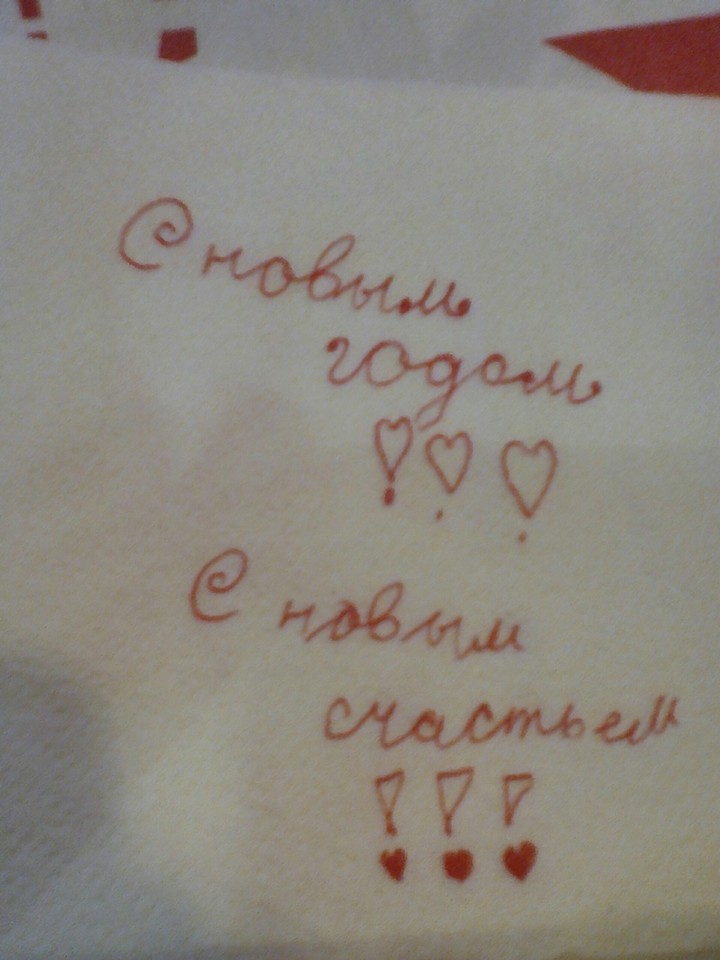 С новым
годом
!!!
С новым
счастьем
!!!